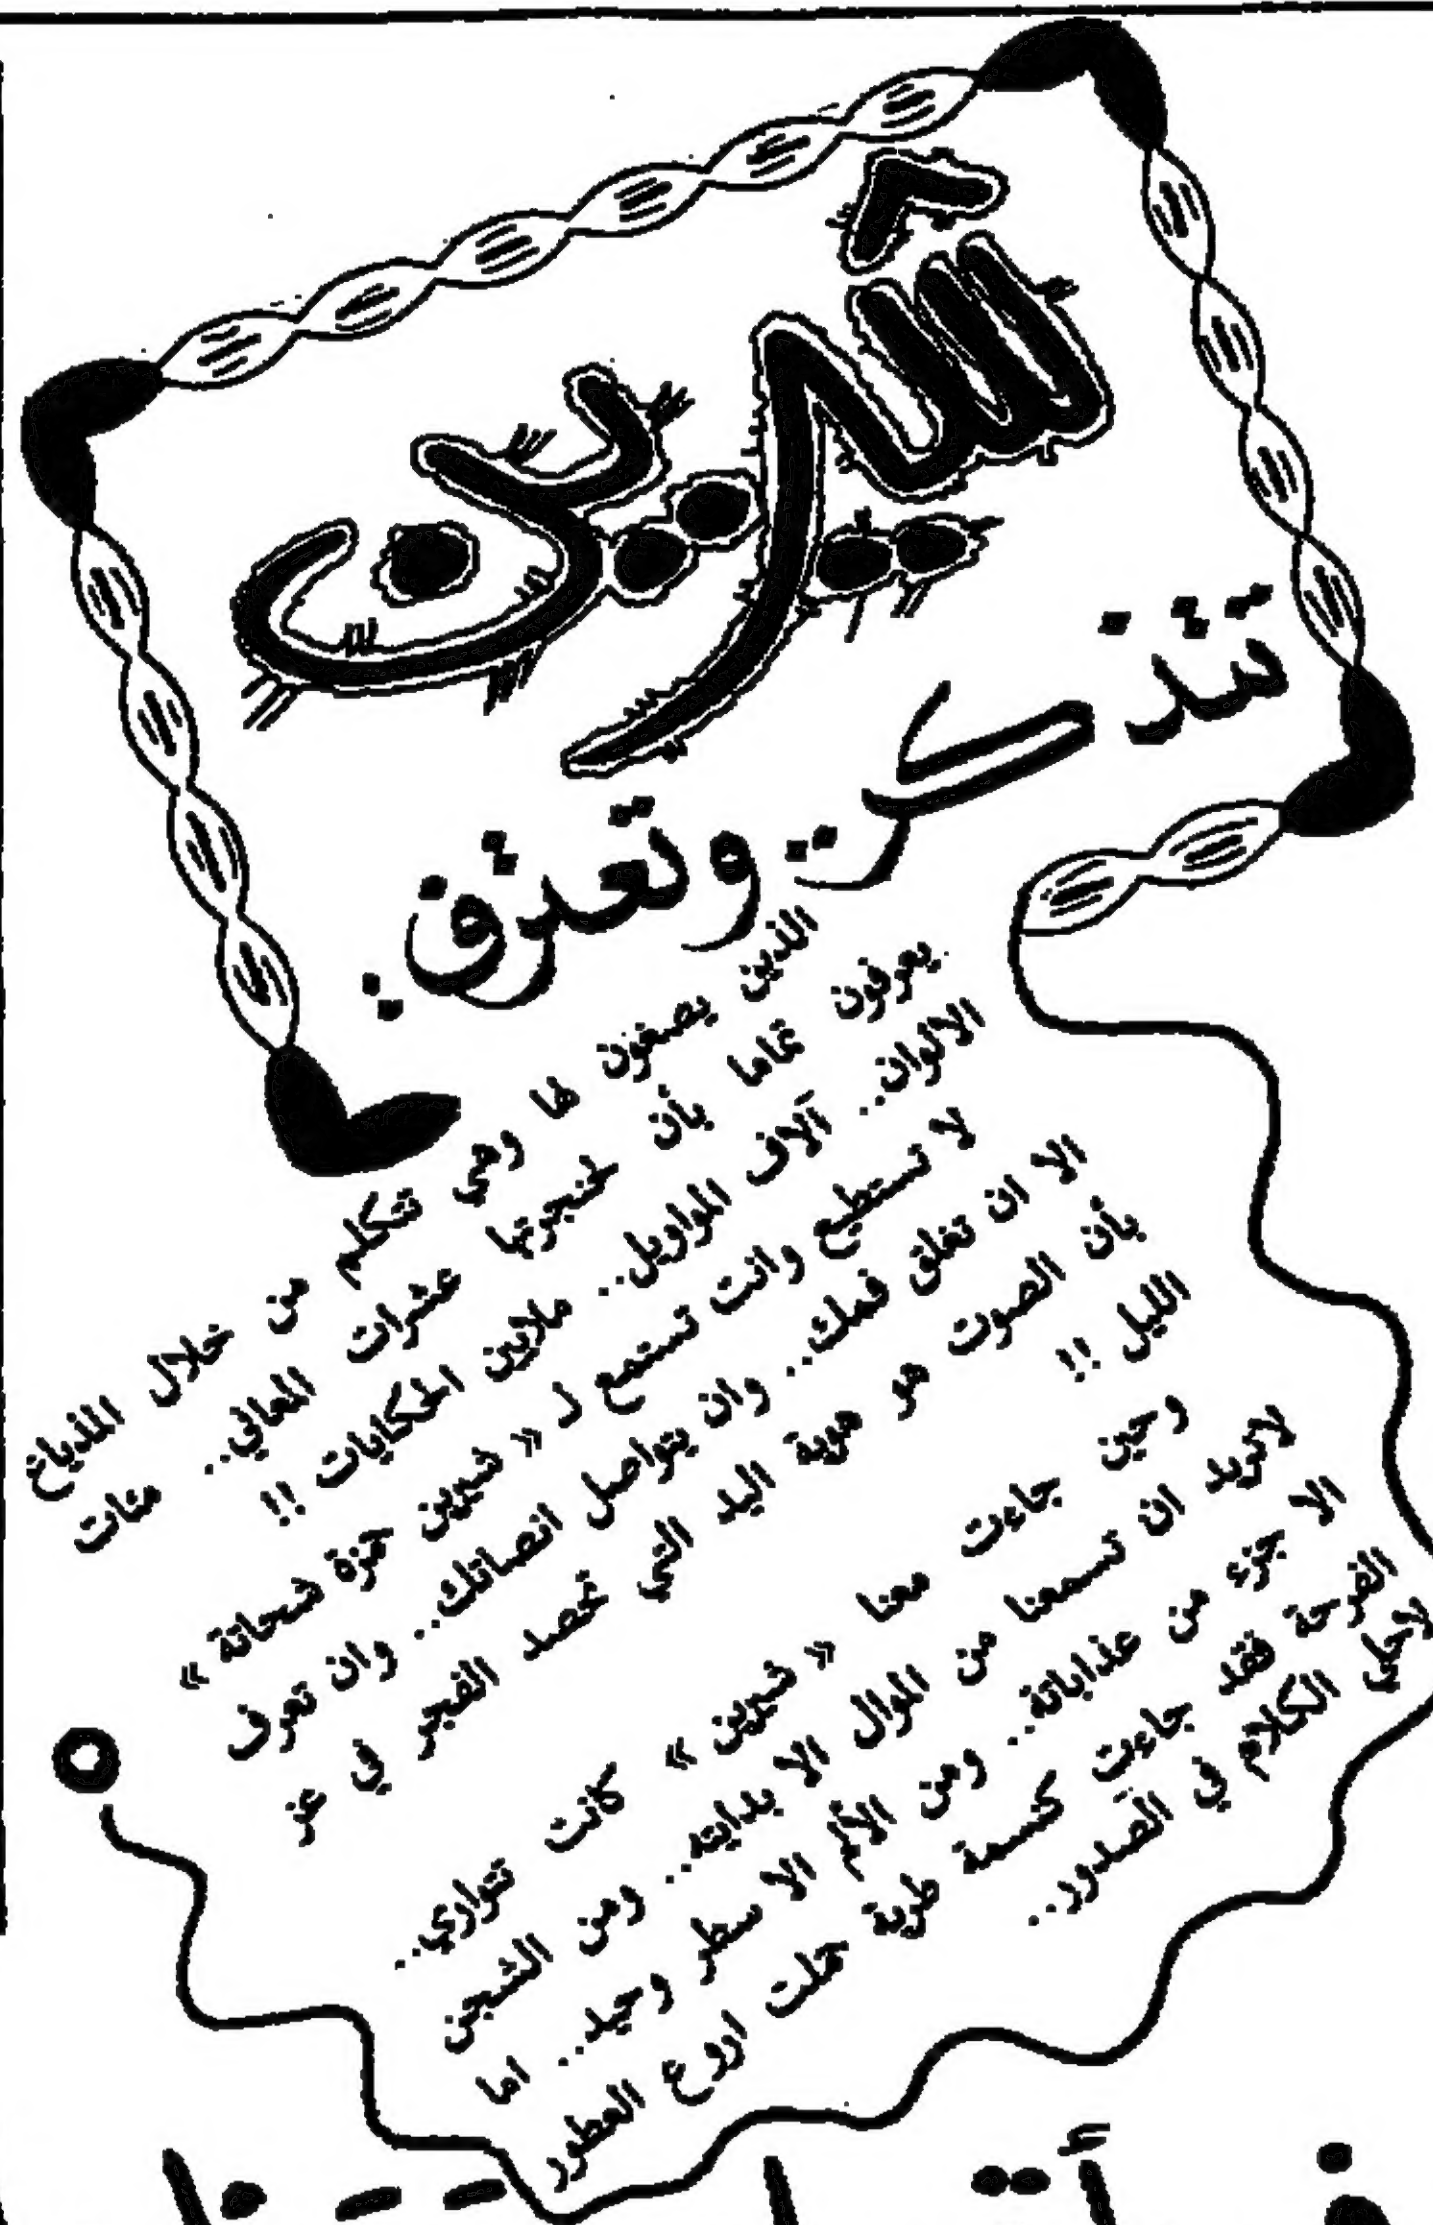 شيرين
تتذكر.. وتعترف..
الذين يصغون لها وهي تتكلم من خلال المذياع
يعرفون تماما بأن لحنجرتها عشرات المعاني.. مئات
الألوان.. آلاف المواويل.. ملايين الحكايات !!
لا تستطيع وانت تستمع لـ « شيرين حمزة شحاتة »
الا ان تغلق فمك.. وان يتواصل انصاتك.. وان تعرف
بأن الصوت هو هوية اليد التي تحصد الفجر في عز
الليل !!
وحين جاءت معنا « شيرين » كانت تتوارى..
لاتريد ان تسمعنا من الموال الا بدايته.. ومن الشجن
الا جزء من عذاباتة.. ومن الألم الا سطر وحيد.. اما
الفرحة فقد جاءت كنسمة طرية حملت اروع العطور
لأحلى الكلام في الصدور..